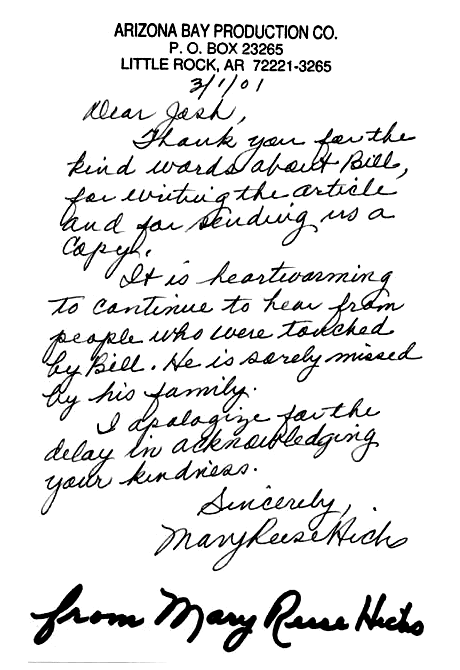 ARIZONA BAY PRODUCTION CO.
P. O. BOX 23265
LITTLE ROCK, AR 72221-3265
3/1/01
Dear Josh,
Thank you for the
kind words about Bill,
for writing the article
and for sending us a
copy.
It is heartwarming
to continue to hear from
people who were touched
by Bill. He is sorely missed
by his family.
I apologize for the
delay in acknowledging
your kindness.
Sincerely,
Mary Reese Hicks
from Mary Reese Hicks